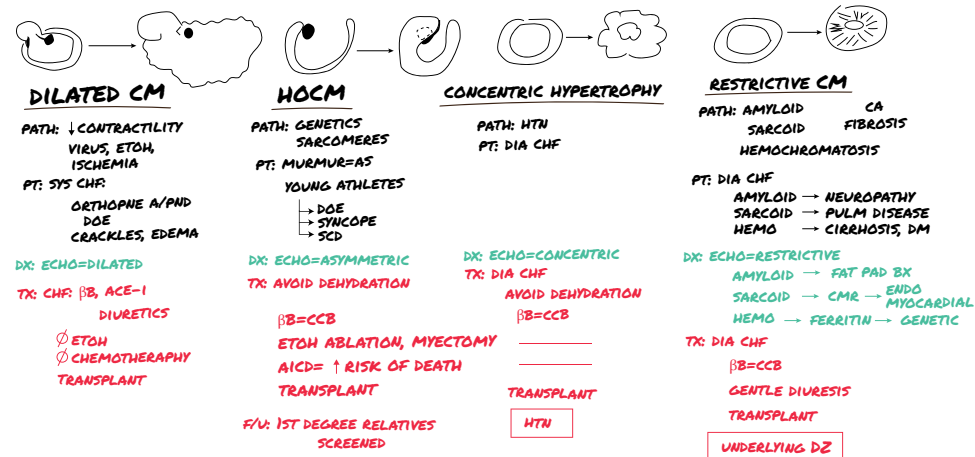 DILATED CM
PATH: ↓CONTRACTILITY
VIRUS, ETOH,
ISCHEMIA
PT: SYS CHF:
ORTHOPNE A/PND
DOE
CRACKLES, EDEMA
DX: ECHO=DILATED
TX: CHF: βB, ACE-I
DIURETICS
∅ ETOH
∅ CHEMOTHERAPHY
TRANSPLANT
HOCM
PATH: GENETICS
SARCOMERES
PT: MURMUR=AS
YOUNG ATHLETES
→DOE
→SYNCOPE
→SCD
DX: ECHO=ASYMMETRIC
TX: AVOID DEHYDRATION
βB=CCB
ETOH ABLATION, MYECTOMY
AICD= ↑ RISK OF DEATH
TRANSPLANT
F/U: 1ST DEGREE RELATIVES
SCREENED
CONCENTRIC HYPERTROPHY
PATH: HTN
PT: DIA CHF
DX: ECHO=CONCENTRIC
TX: DIA CHF
AVOID DEHYDRATION
βB=CCB
TRANSPLANT
HTN
RESTRICTIVE CM
PATH: AMYLOID CA
SARCOID FIBROSIS
HEMOCHROMATOSIS
PT: DIA CHF
AMYLOID → NEUROPATHY
SARCOID → PULM DISEASE
HEMO → CIRRHOSIS, DM
DX: ECHO=RESTRICTIVE
AMYLOID → FAT PAD BX
SARCOID → CMR → ENDO
MYOCARDIAL
HEMO → FERRITIN → GENETIC
TX: DIA CHF
βB=CCB
GENTLE DIURESIS
TRANSPLANT
UNDERLYING DZ